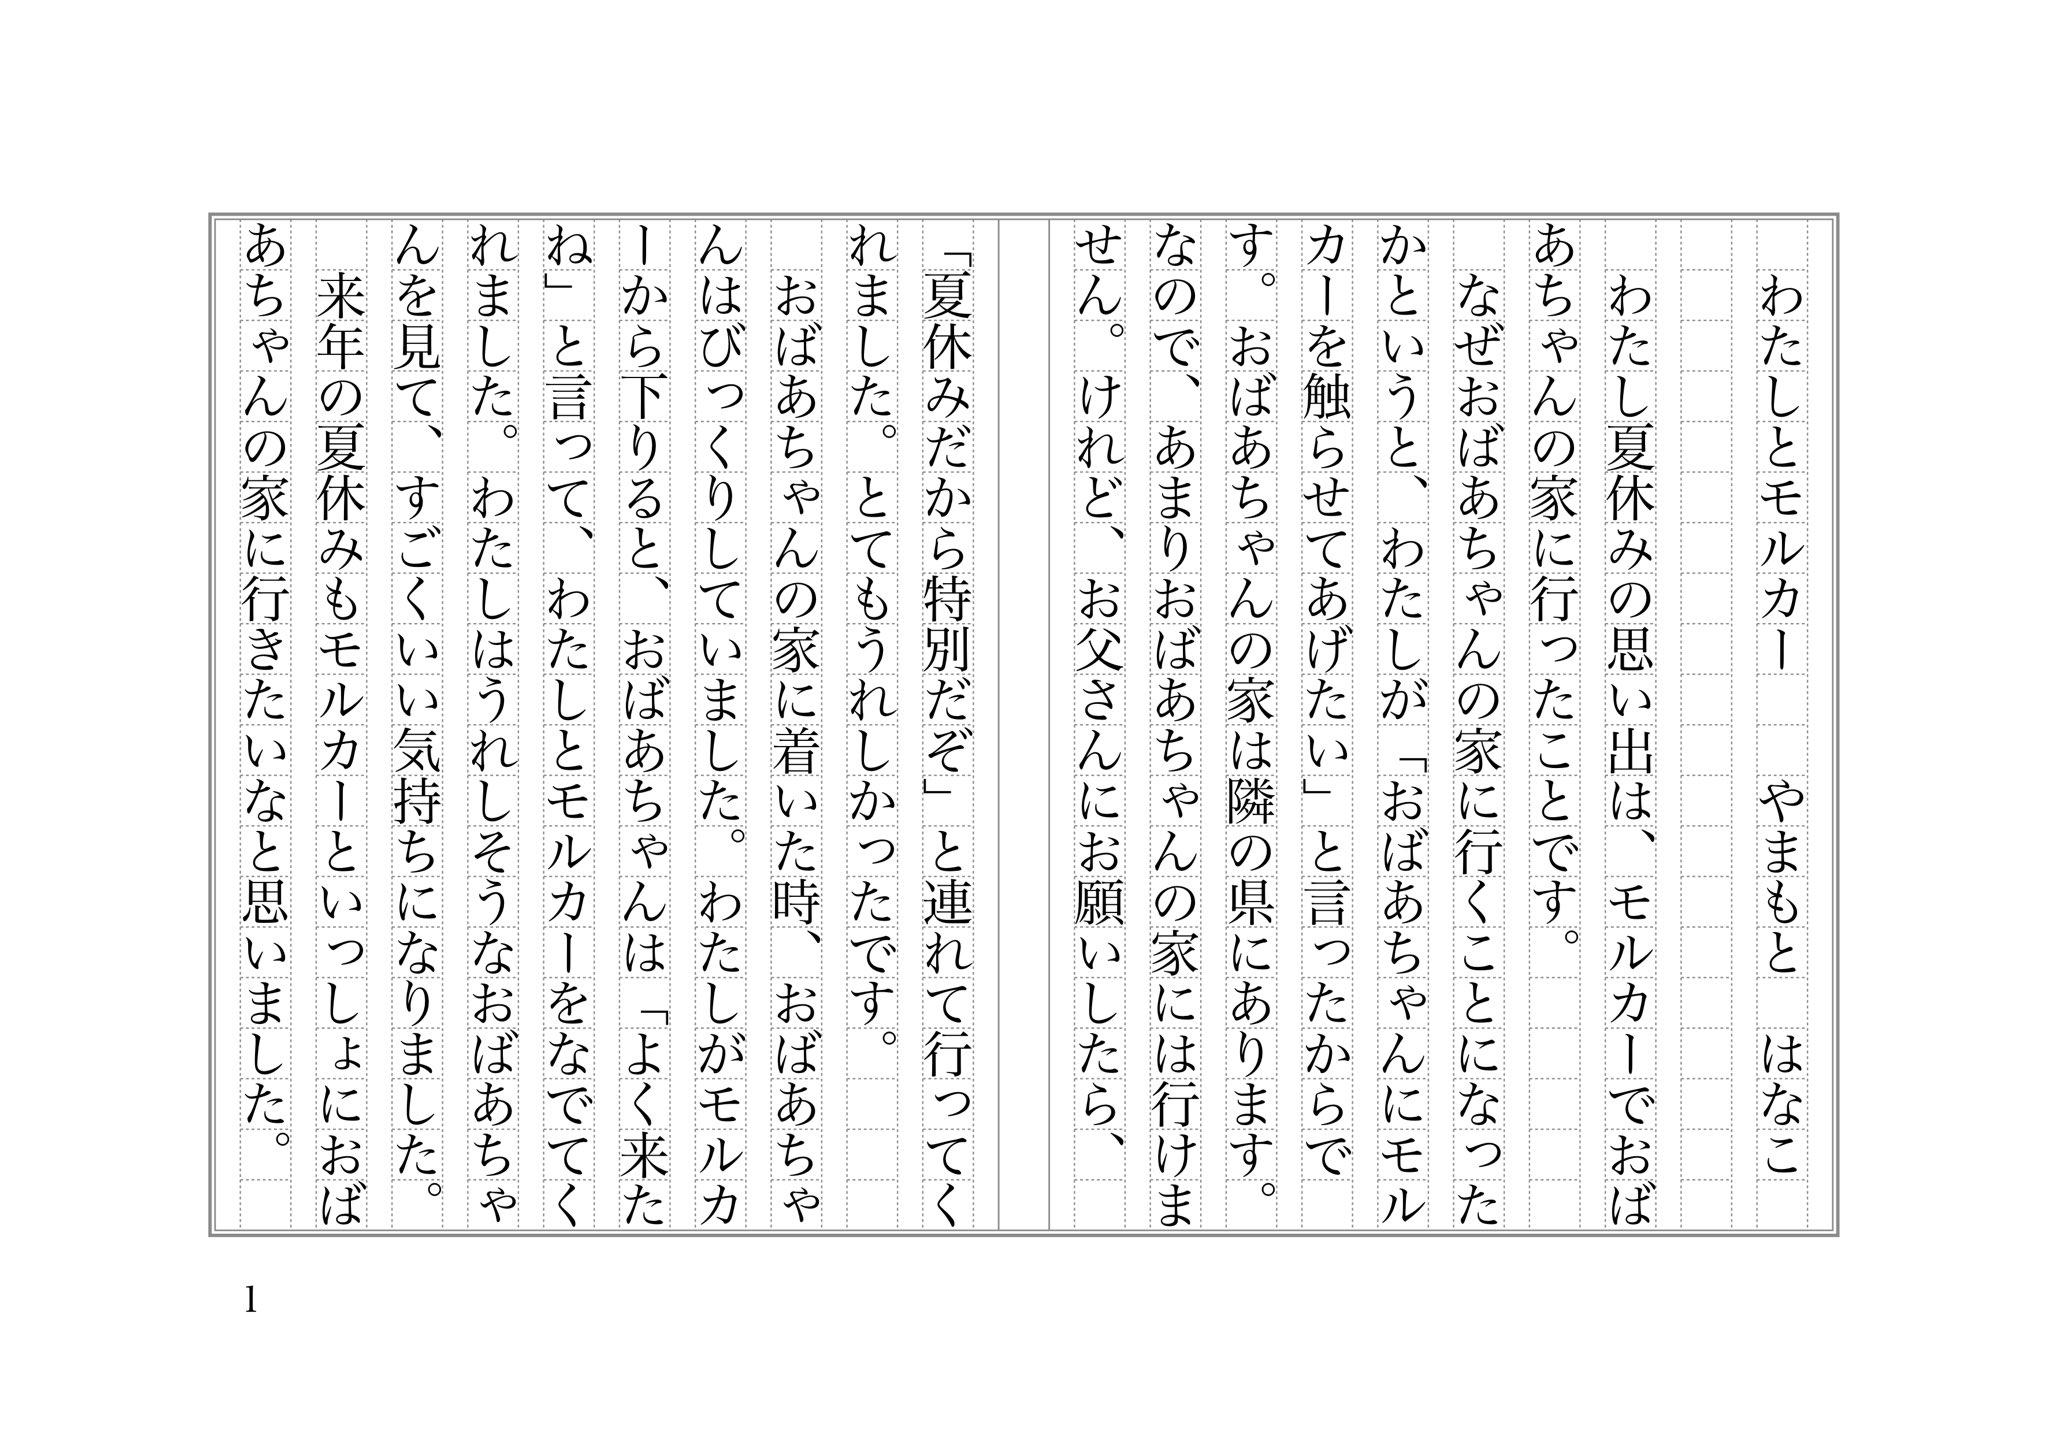 わたしとモルカー　　やまもと　はなこ
　わたし夏休みの思い出は、モルカーでおば
あちゃんの家に行ったことです。
　なぜおばあちゃんの家に行くことになった
かというと、わたしが「おばあちゃんにモル
カーを触らせてあげたい」と言ったからで
す。おばあちゃんの家は隣の県にあります。
なので、あまりおばあちゃんの家には行けま
せん。けれど、お父さんにお願いしたら、
「夏休みだから特別だぞ」と連れて行ってく
れました。とてもうれしかったです。
　おばあちゃんの家に着いた時、おばあちゃ
んはびっくりしていました。わたしがモルカ
ーから下りると、おばあちゃんは「よく来た
ね」と言って、わたしとモルカーをなでてく
れました。わたしはうれしそうなおばあちゃ
んを見て、すごくいい気持ちになりました。
　来年の夏休みもモルカーといっしょにおば
あちゃんの家に行きたいなと思いました。
1